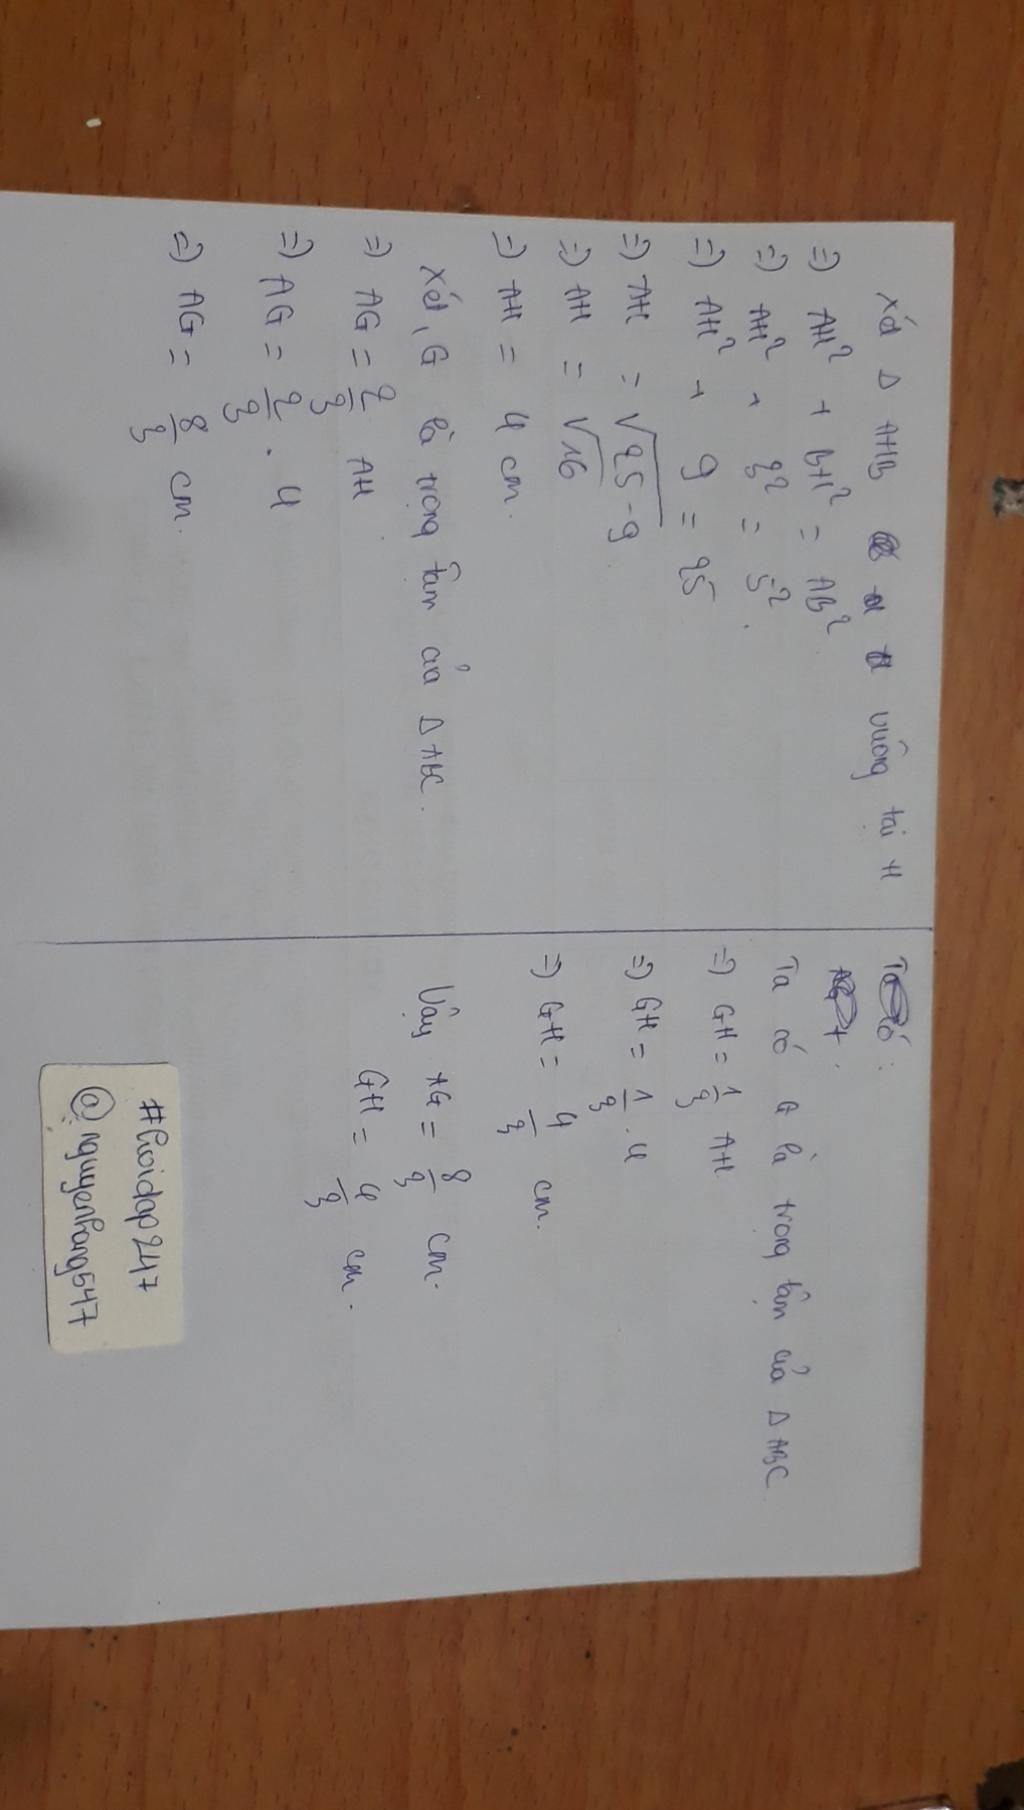 Xét Δ AHB vuông tại H
=) AH² + BH² = AB²
=) AH² + 3² = 5².
=) AH² + 9 = 25
=) AH = √25-9
=) AH = √16
=) AH = 4 cm.
Xét, G là trọng tâm của Δ ABC.
=) AG = 2/3 AH
=) AG = 2/3 . 4
=) AG = 8/3 cm.
Ta có :
Ta có G là trọng tâm của Δ ABC
=) GH = 1/3 AH
=) GH = 1/3 . 4
=) GH = 4/3 cm.
Vậy AG = 8/3 cm.
GH = 4/3 cm.
#hoidap247
@nguyenhang547